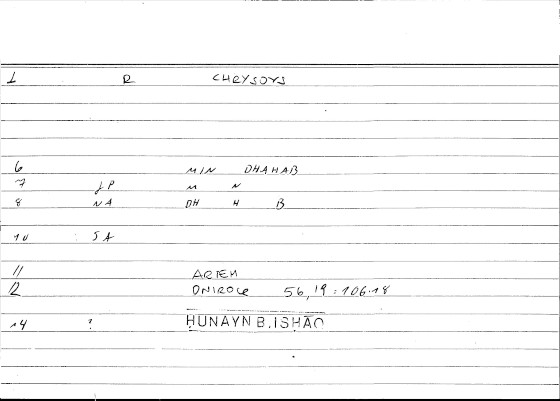 1 R CHRYSOYS
6 MIN DHAHAB
7 JP M N
8 NA DH H B
10 : SA
11 ARTEM
12 ONIROCR 56,19 = 106.18
14 ? ḤUNAYN B.ISḤĀQ